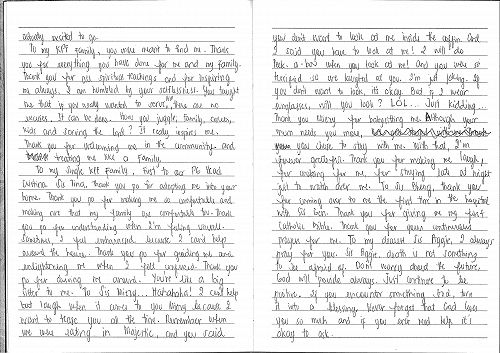 actually excited to go.
To my KPF family, you were meant to find me. Thank
you for everything you have done for me and my family.
Thank you for all spiritual teachings and for inspiring
me always. I am humbled by your selflessness. You taught
me that if you really wanted to serve, there are no
excuses. It can be done. How you juggle, family, career,
kids and serving the Lord? It really inspires me.
Thank you for welcoming me in the community and
treating me like a family.
To my single KPF family, first to our PG Head
Cristina Sis Tina, thank you for adopting me into your
home. Thank you for making me so comfortable and
making sure that my family are comfortable too. Thank
you for understanding when I'm feeling unwell.
Sometimes, I feel embarrassed because I can't help
around the house. Thank you for guiding me and
enlightening me when I felt unloved. Thank you
for driving me around. You're like a big
sister to me. To Sis Missy. Hahahaha! I can't help
but laugh when it comes to you Missy because I
want to tease you all the time. Remember when
we were eating in Majestic, and you said
you don't want to look at me inside the coffin. And
I said you have to look at me! I will do
peek-a-boo when you look at me! And you were so
terrified so we laughed at you. I'm just joking. If
you don't want to look, it's okay. But if I wear
sunglasses, will you look? LOL... Just kidding...
Thank you Missy for babysitting me. Although your
mum needs you more,
you chose to stay with me. With that, I'm
forever grateful. Thank you for making me laugh,
for cooking for me, for staying late at night
just to watch over me. To Sis Bheng, thank you
for coming over to me the first time in the hospital
with Sis Len. Thank you for giving me my first
Catholic bible. Thank you for your continuous
prayers for me. To my dearest Sis Aggie, I always
pray for you. Sis Aggie, death is not something
to be afraid of. Don't worry about the future,
God will provide always. Just continue to be
positive. If you encounter something bad, turn
it into a blessing. Never forget that God loves
you so much and if you ever need help it's
okay to ask.